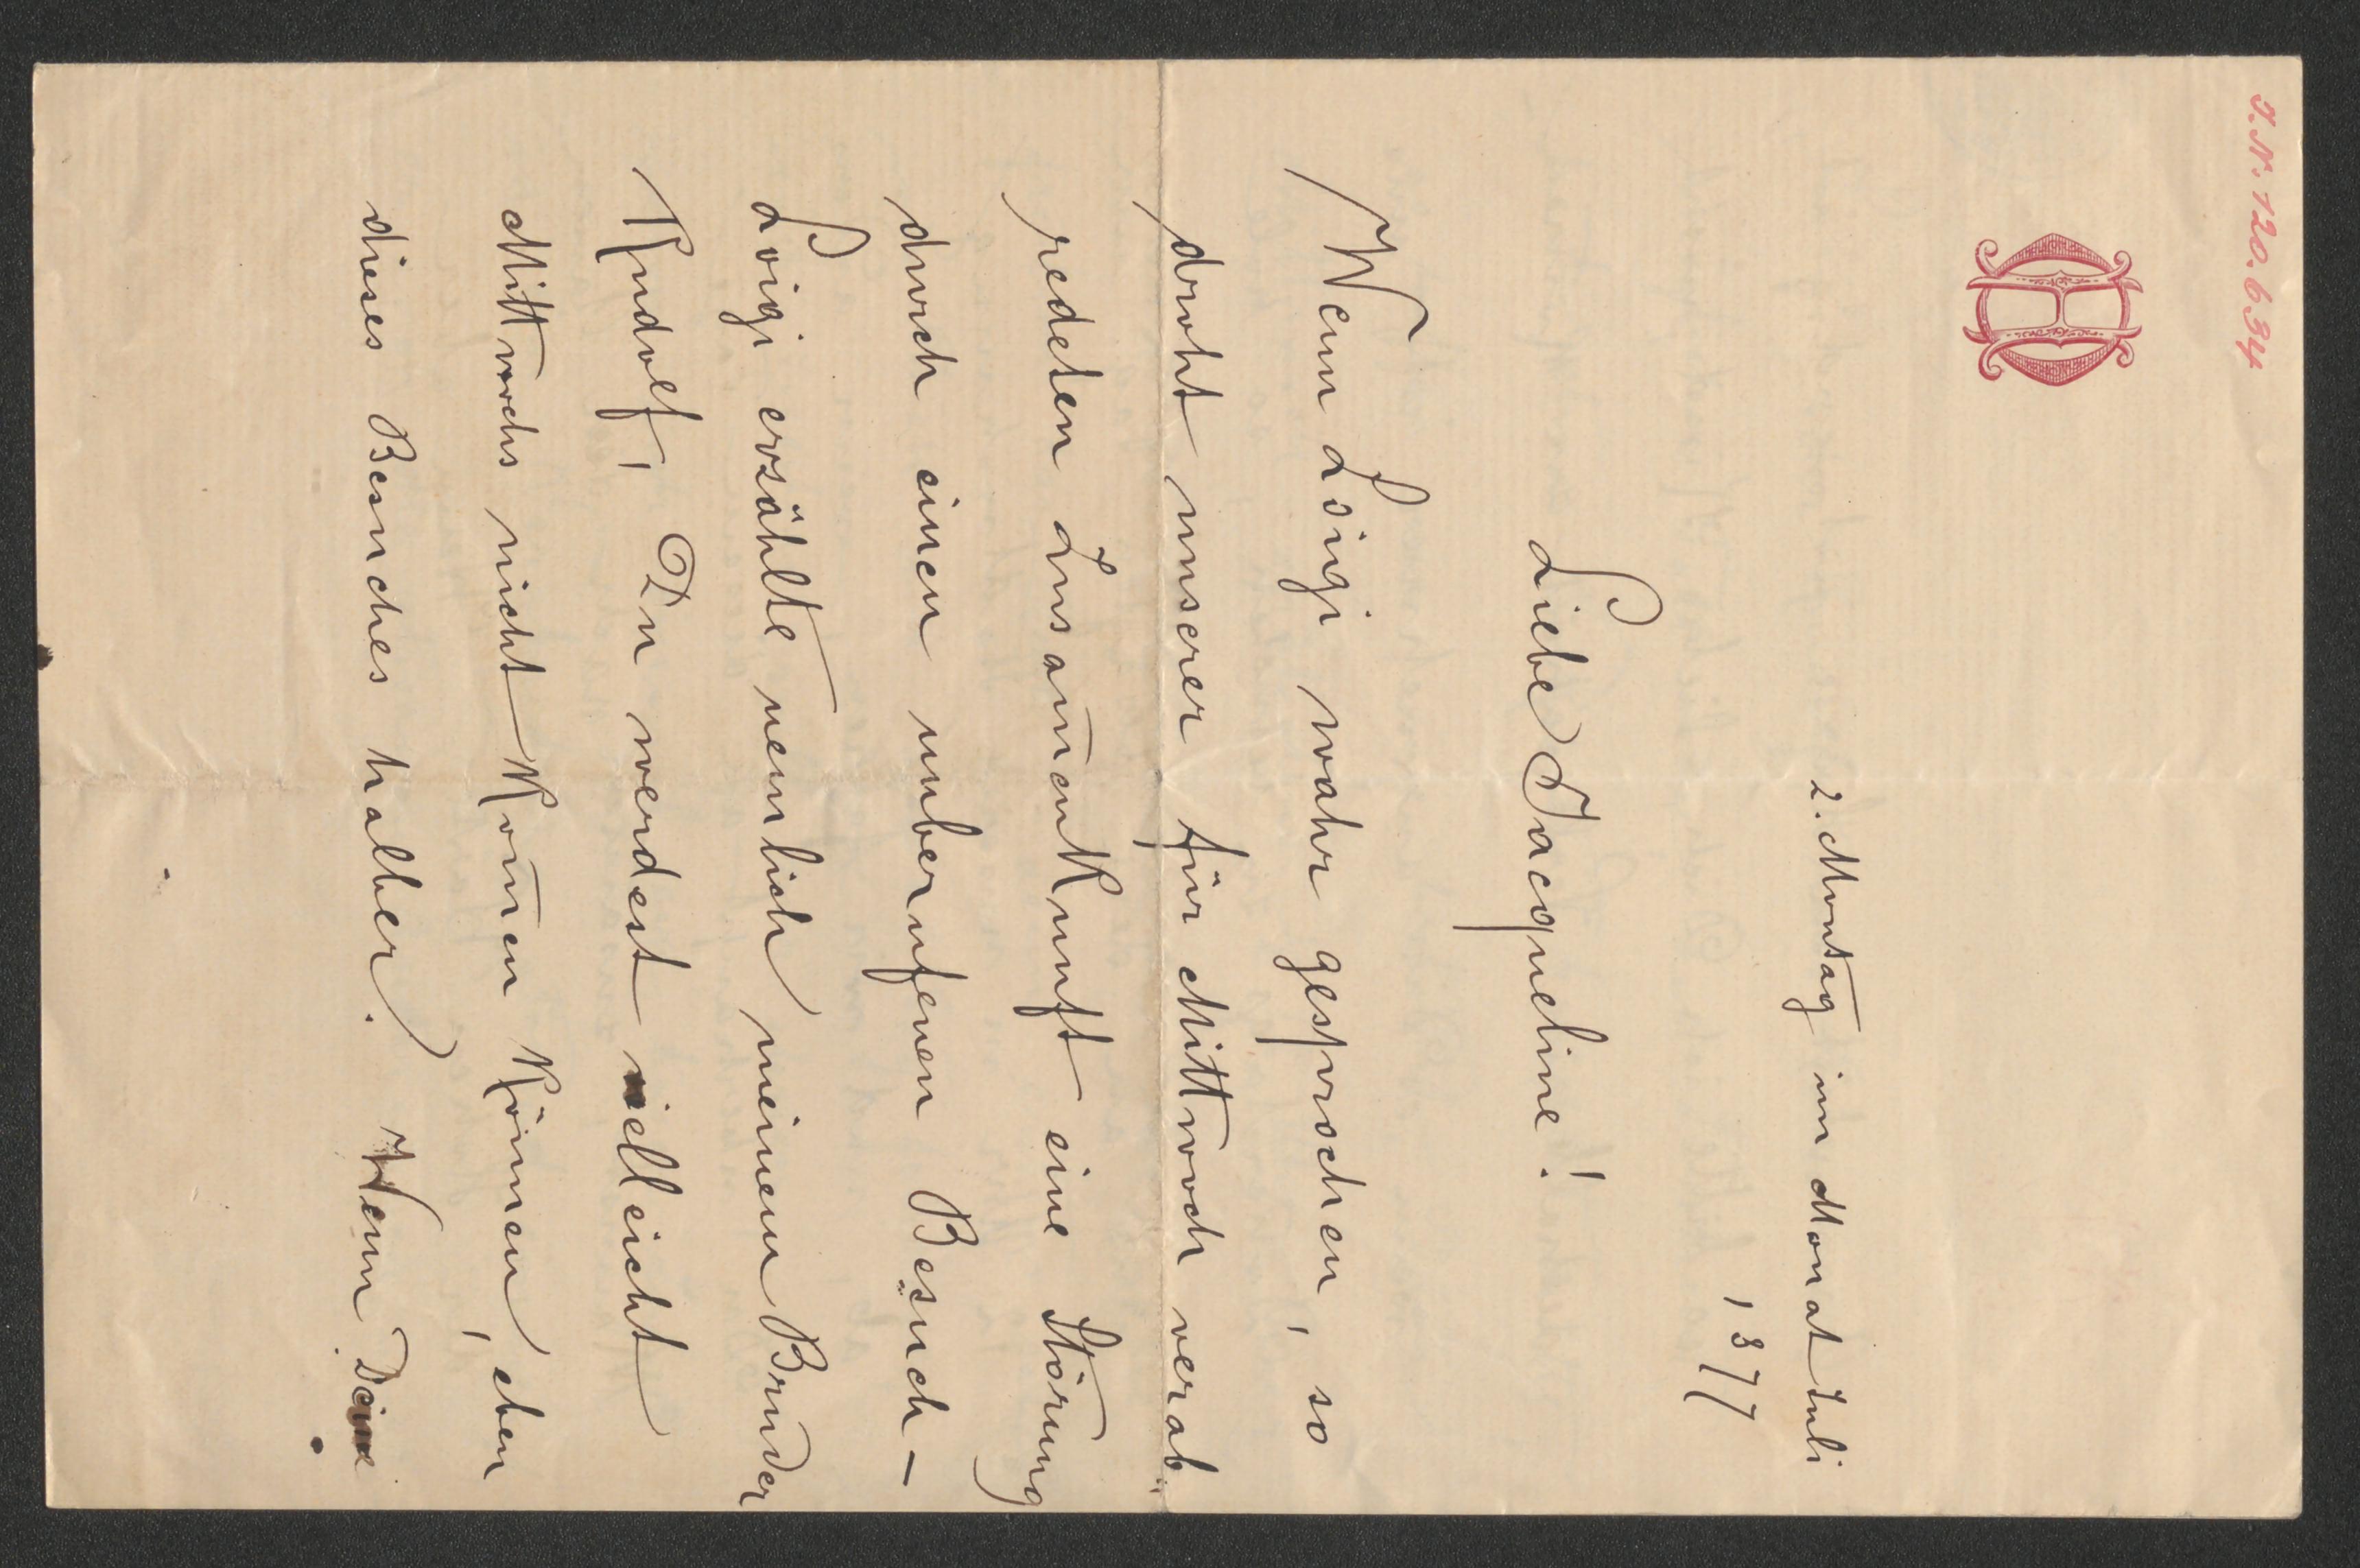 J.N. 120.634
2. Montag im Monat Juli
1877
Liebe Jacqueline!
Wenn Loigi wahr gesprochen, so
droht unserer für Mittwoch verab„
redeten Zusam̄enkunft eine Störung
durch einen unberufenen Besuch –
Loigi erzählte nemlich meinem Bruder
Rudolf, Du werdest vielleicht
Mittwochs nicht kom̄en können, eben
dieses Besuches halber. Wenn Deine